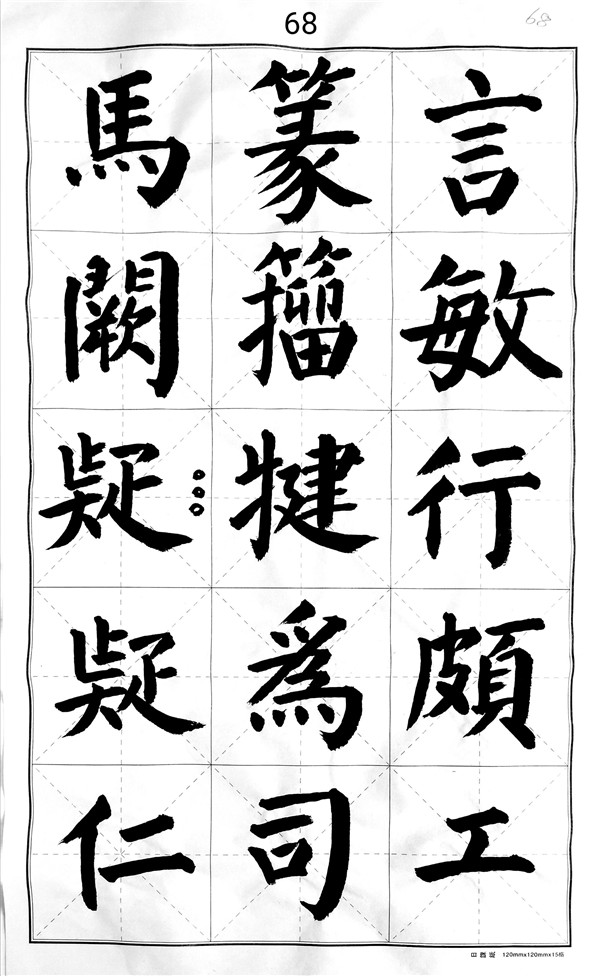 68
68
言敏行頗工
篆籀犍爲司
馬闕疑疑仁
120mmx120mmx15格